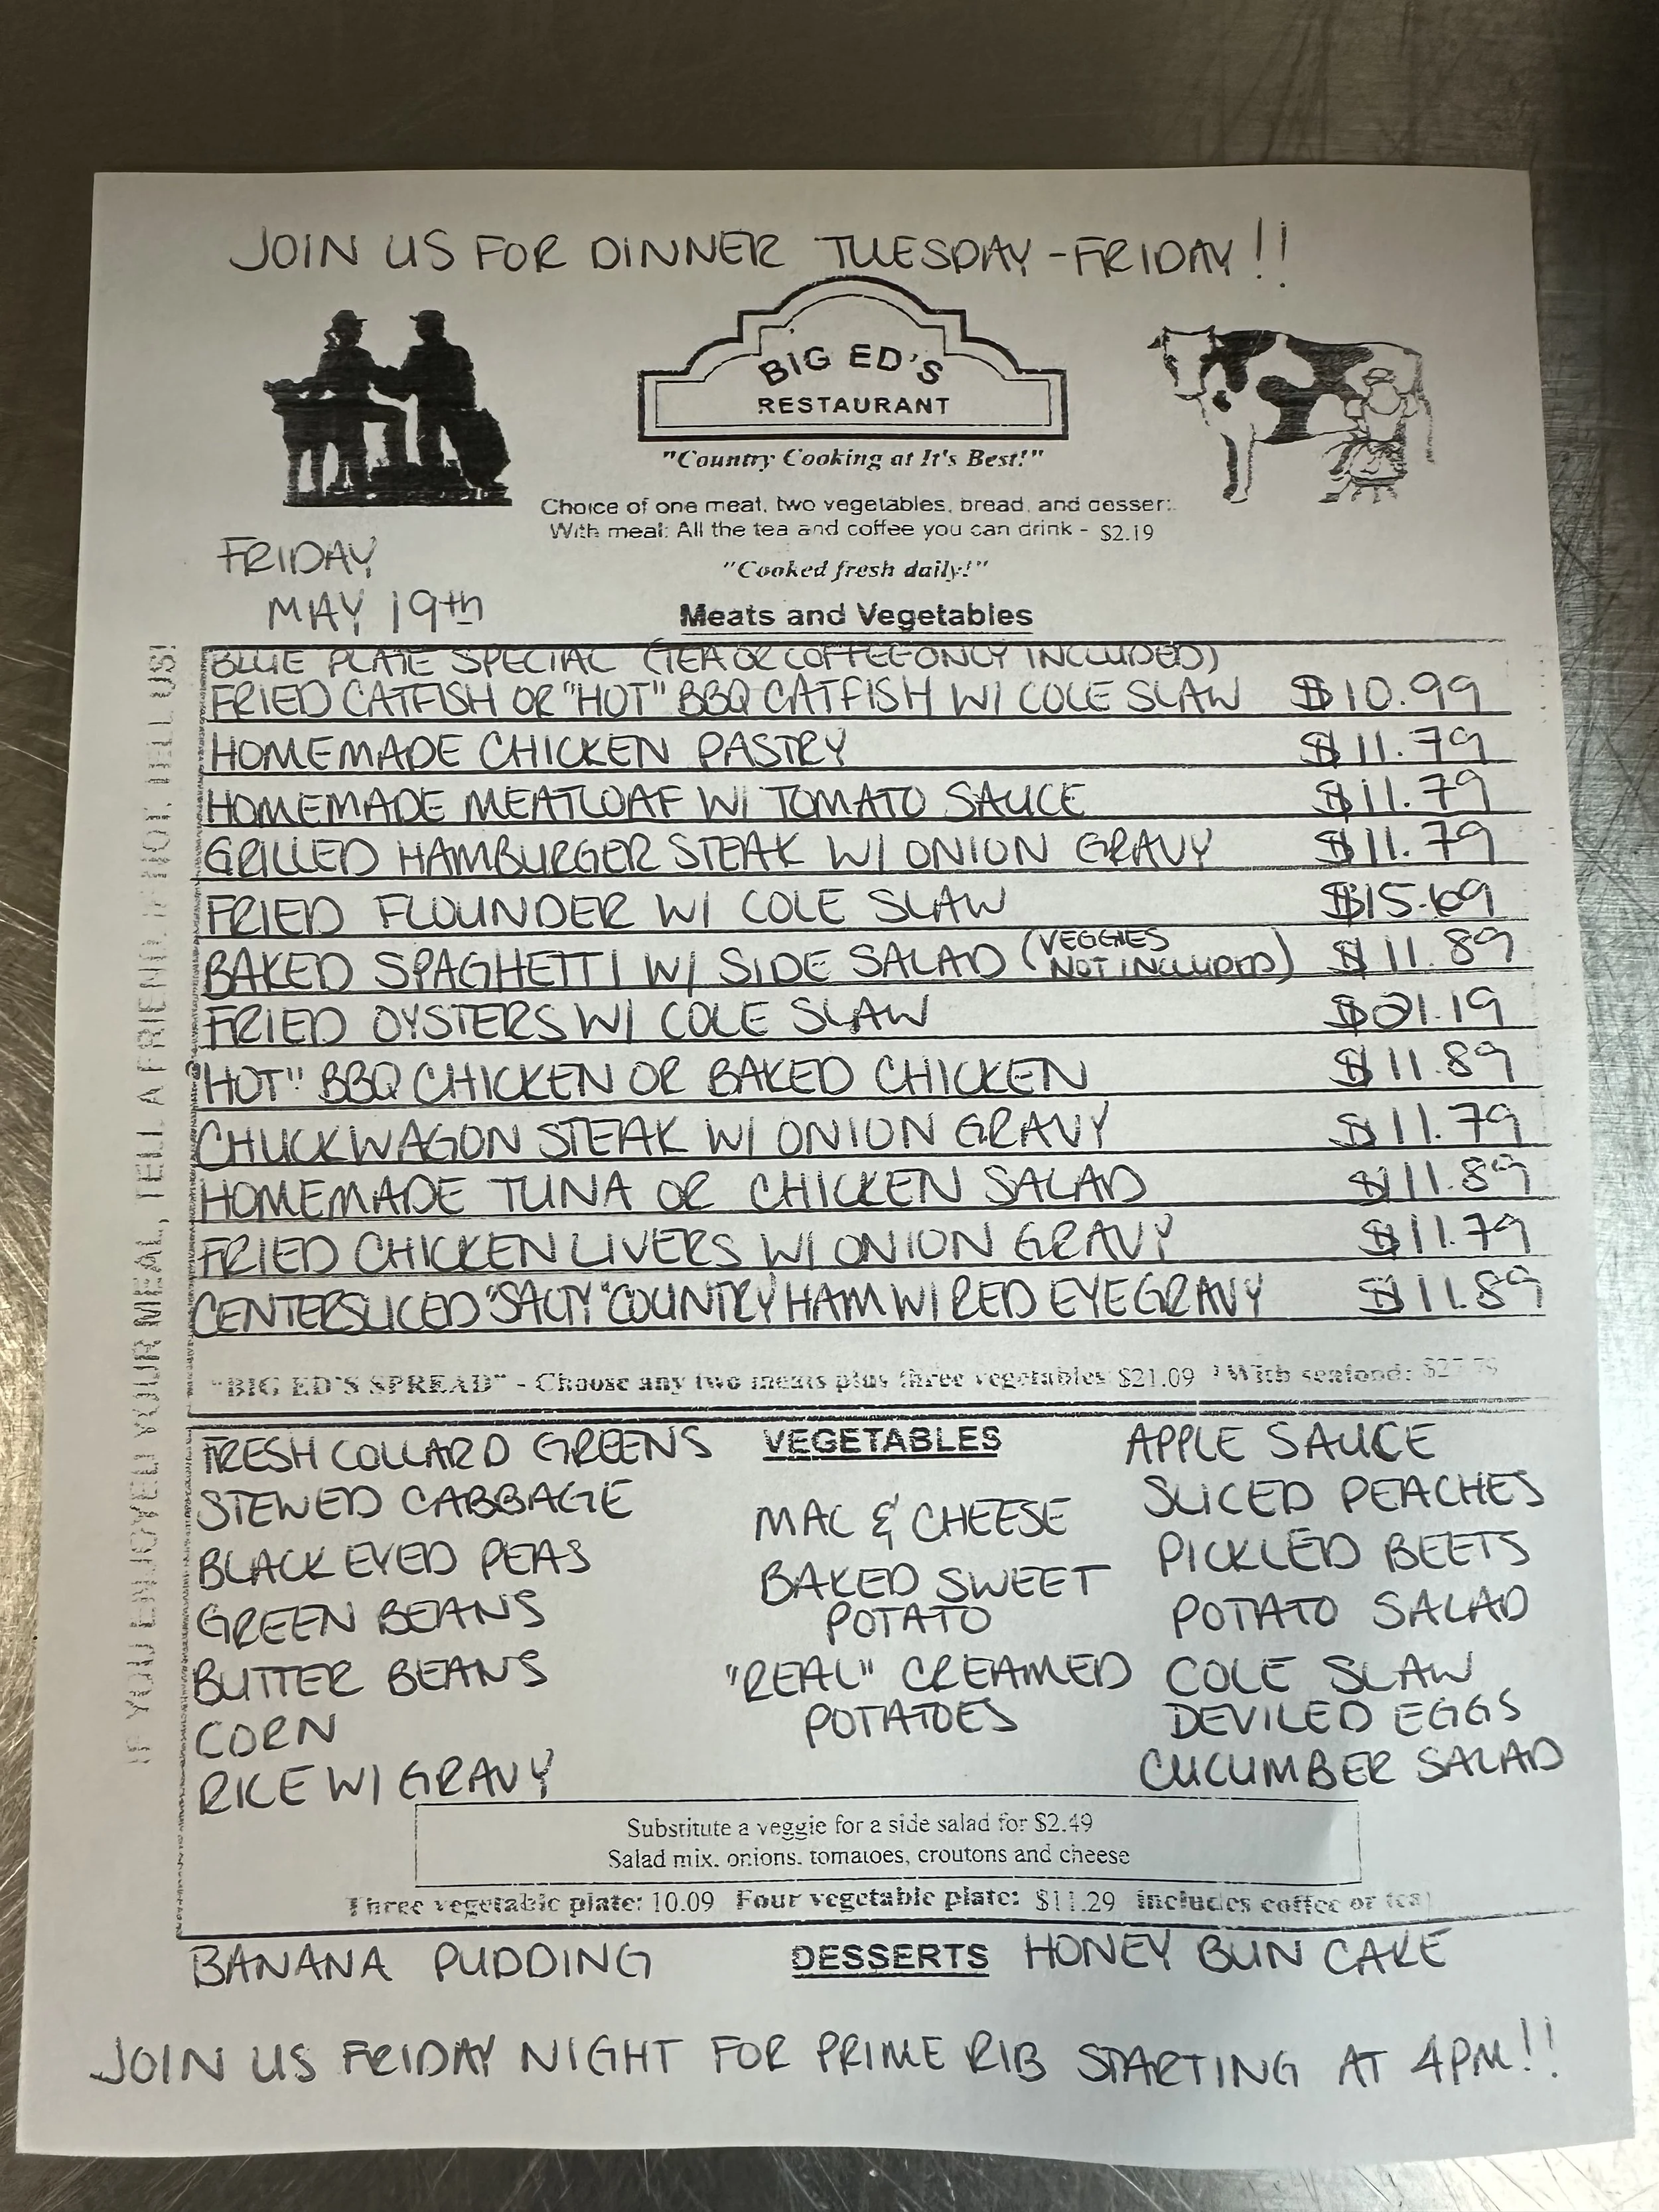 JOIN US FOR DINNER TUESDAY-FRIDAY!!
BIG ED'S
RESTAURANT
"Country Cooking at It's Best!"
Choice of one meat, two vegetables, bread, and dessert
With meal: All the tea and coffee you can drink - $2.19
"Cooked fresh daily!"
FRIDAY
MAY 19th
Meats and Vegetables
BLUE PLATE SPECIAL (TEA OR COFFEE ONLY INCLUDED)
FRIED CATFISH OR "HOT" BBQ CATFISH W/ COLE SLAW $10.99
HOMEMADE CHICKEN PASTRY $11.79
HOMEMADE MEATLOAF W/ TOMATO SAUCE $11.79
GRILLED HAMBURGER STEAK W/ ONION GRAVY $11.79
FRIED FLOUNDER W/ COLE SLAW $15.69
BAKED SPAGHETTI W/ SIDE SALAD (VEGGIES NOT INCLUDED) $11.89
FRIED OYSTERS W/ COLE SLAW $21.19
"HOT" BBQ CHICKEN OR BAKED CHICKEN $11.89
CHUCKWAGON STEAK W/ ONION GRAVY $11.79
HOMEMADE TUNA OR CHICKEN SALAD $11.89
FRIED CHICKEN LIVERS W/ ONION GRAVY $11.79
CENTERSLICED "SALTY" COUNTRY HAM W/ RED EYE GRAVY $11.89
"BIG ED'S SPREAD" - Choose any two meats plus three vegetables $21.09 With seafood:
IF YOU ENJOYED YOUR MEAL, TELL A FRIEND, IF NOT, TELL US!
VEGETABLES
FRESH COLLARD GREENS
STEWED CABBAGE
BLACK EYED PEAS
GREEN BEANS
BUTTER BEANS
CORN
RICE W/ GRAVY
MAC & CHEESE
BAKED SWEET
POTATO
"REAL" CREAMED
POTATOES
APPLE SAUCE
SLICED PEACHES
PICKLED BEETS
POTATO SALAD
COLE SLAW
DEVILED EGGS
CUCUMBER SALAD
Substitute a veggie for a side salad for $2.49
Salad mix, onions, tomatoes, croutons and cheese
Three vegetable plate: 10.09 Four vegetable plate: $11.29 includes coffee or tea)
DESSERTS
BANANA PUDDING
HONEY BUN CAKE
JOIN US FRIDAY NIGHT FOR PRIME RIB STARTING AT 4PM!!